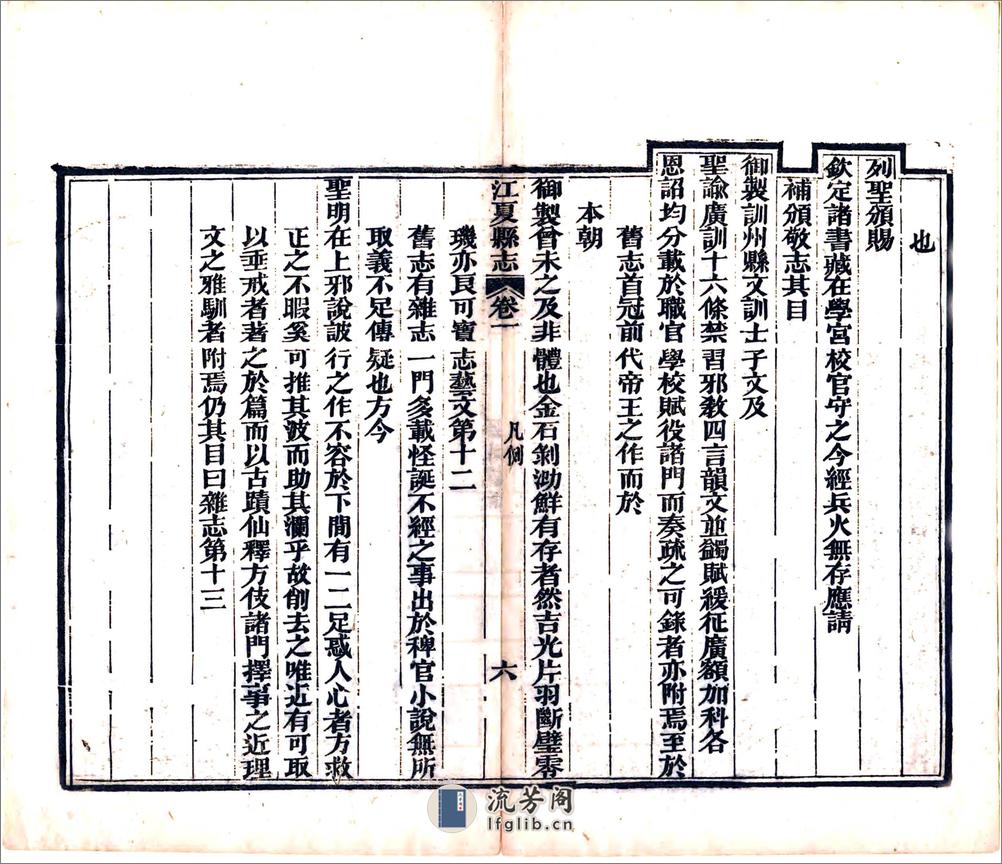 也
列聖頒賜
欽定諸書藏在學宮校官守之今經兵火無存應請
補頒敬志其目
御製訓州縣文訓士子文及
聖諭廣訓十六條禁習邪敎四言韻文並蠲賦緩征廣額加科各
恩詔均分載於職官學校賦役諸門而奏疏之可錄者亦附焉至於
舊志首冠前代帝王之作而於
本朝
御製曾未之及非體也金石剝泐鮮有存者然吉光片羽斷璧零
江夏縣志 卷一 凡例 六
璣亦良可寶志藝文第十二
舊志有雜志一門多載怪誕不經之事出於稗官小說無所
取義不足傳疑也方今
聖明在上邪說詖行之作不容於下間有一二足惑人心者方救
正之不暇奚可推其波而助其瀾乎故削去之唯近有可取
以垂戒者著之於篇而以古蹟仙釋方伎諸門擇事之近理
文之雅馴者附焉仍其目曰雜志第十三
流芳阁
lfglib.cn